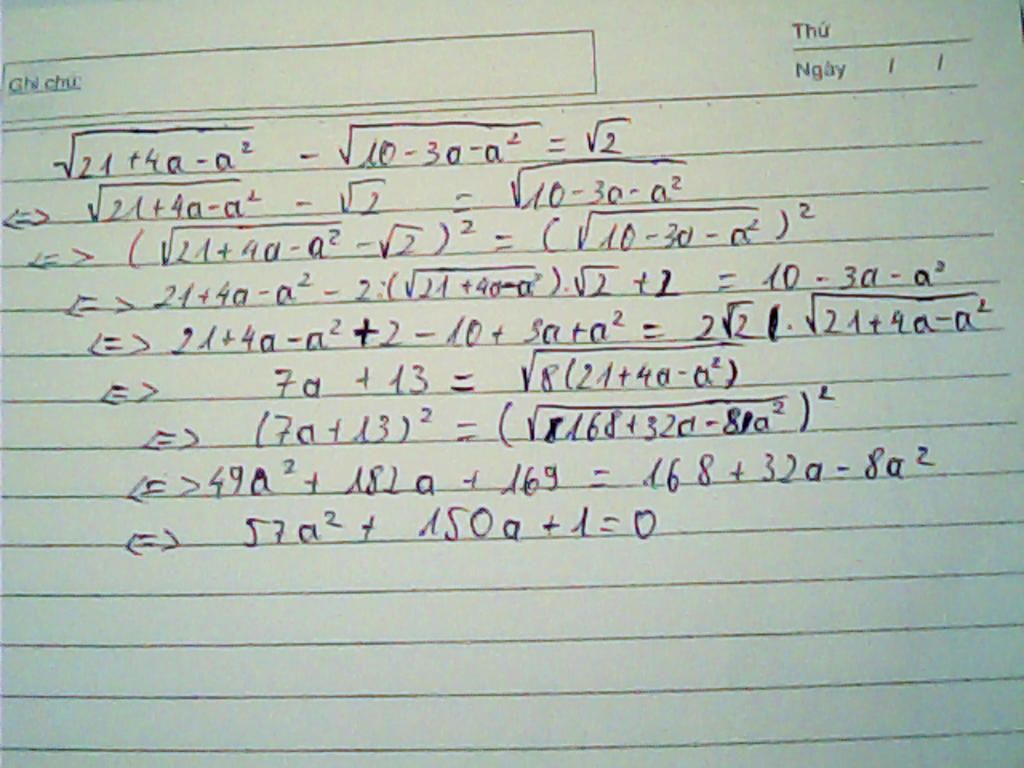 Thứ
Ghi chú:
Ngày / /
√21+4a-a² - √10-3a-a² = √2
<=> √21+4a-a² - √2 = √10-3a-a²
<=> (√21+4a-a² - √2)² = (√10-3a-a²)²
<=> 21+4a-a² - 2.(√21+4a-a²).√2 + 2 = 10-3a-a²
<=> 21+4a-a² + 2 - 10 + 3a + a² = 2√2 . √21+4a-a²
<=> 7a + 13 = √8(21+4a-a²)
<=> (7a+13)² = (√168+32a-8a²)²
<=> 49a² + 182a + 169 = 168 + 32a - 8a²
<=> 57a² + 150a + 1 = 0